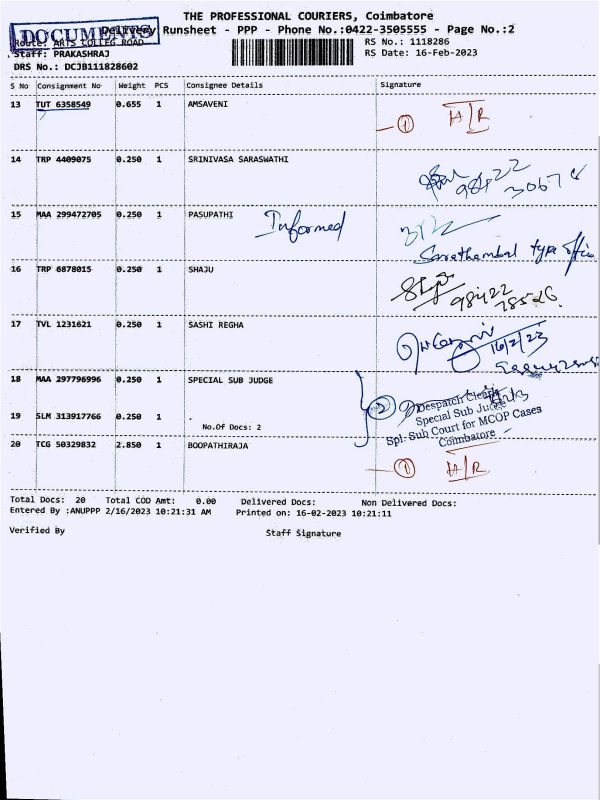 THE PROFESSIONAL COURIERS, Coimbatore
DOCUMENTS
Delivery Runsheet - PPP - Phone No.:0422-3505555 - Page No.:2
Route: ARTS COLLEG ROAD
RS No.: 1118286
Staff: PRAKASHRAJ
RS Date: 16-Feb-2023
DRS No.: DCJB111828602
S No Consignment No Weight PCS Consignee Details Signature
13 TUT 6358549 0.655 1 AMSAVENI
1 H/R
14 TRP 4409075 0.250 1 SRINIVASA SARASWATHI
98422
30678
15 MAA 299472705 0.250 1 PASUPATHI Informed
Sarathambal type office
16 TRP 6878015 0.250 1 SHAJU
98422
78526.
17 TVL 1231621 0.250 1 SASHI REGHA
16/2/23
18 MAA 297796996 0.250 1 SPECIAL SUB JUDGE
2 Despatch Clerk
19 SLM 313917766 0.250 1 .
Special Sub Judge
No.Of Docs: 2
Spl. Sub Court for MCOP Cases
Coimbatore
20 TCG 50329832 2.850 1 BOOPATHIRAJA
1 H/R
Total Docs: 20 Total COD Amt: 0.00 Delivered Docs: Non Delivered Docs:
Entered By :ANUPPP 2/16/2023 10:21:31 AM Printed on: 16-02-2023 10:21:11
Verified By Staff Signature